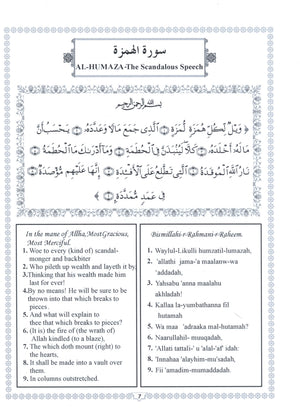 سورة الهمزة
AL-HUMAZA-The Scandalous Speech
بسم الله الرحمن الرحيم
﴿ وَيْلٌ لِّكُلِّ هُمَزَةٍ لُّمَزَةٍ ۝ الَّذِي جَمَعَ مَالًا وَعَدَّدَهُ ۝ يَحْسَبُ أَنَّ
مَالَهُ أَخْلَدَهُ ۝ كَلَّا لَيُنبَذَنَّ فِي الْحُطَمَةِ ۝ وَمَا أَدْرَاكَ مَا الْحُطَمَةُ ۝
نَارُ اللَّهِ الْمُوقَدَةُ ۝ الَّتِي تَطَّلِعُ عَلَى الْأَفْئِدَةِ ۝ إِنَّهَا عَلَيْهِم مُّؤْصَدَةٌ ۝
فِي عَمَدٍ مُّمَدَّدَةٍ ﴾
In the mane of Allha,MostGracious,
Most Merciful.
1. Woe to every (kind of) scandal-
monger and backbiter
2. Who pileth up wealth and layeth it by,
3.Thinking that his wealth made him
last for ever!
4.By no means! He will be sure to be
thrown into that which breaks to
pieces .
5. And what will explain to
thee that which breaks to pieces?
6. (It is) the fire of (the wrath of)
Allah kindled (to a blaze),
7. The which doth mount (right) to
the hearts,
8. It shall be made into a vault over
them.
9. In columns outstretched.
Bismillahi-r-Rahmani-r-Raheem.
1. Waylul-Likulli humzatil-lumazah,
2. 'allathi jama-'a maalanw-wa
'addadah,
3. Yahsabu 'anna maalahu
akhladah!
4. Kallaa la-yumbathanna fil
hutamah
5. Wa maa 'adraaka mal-hutamah?
6. Naarullahil- muuqadah,
7. 'Allati tattali-' u 'alal-'af' idah:
8. 'Innahaa 'alayhim-mu'-sadah,
9. Fii 'amadim-mumaddadah.
7